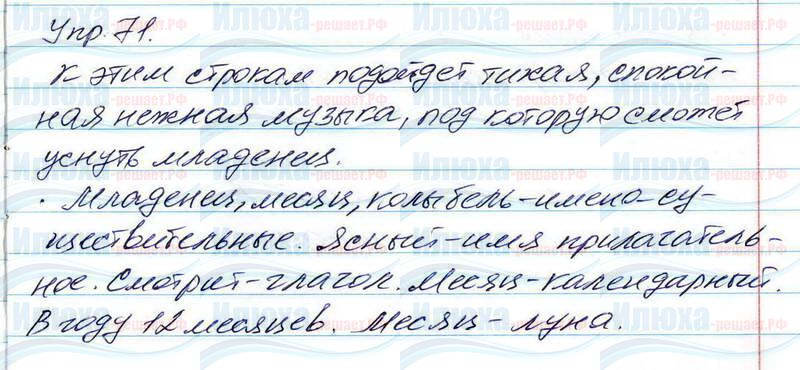 Упр. 71.
К этим строкам подойдёт тихая, спокой-
ная нежная музыка, под которую сможет
уснуть младенец.
· Младенец, месяц, колыбель-имена су-
ществительные. Ясный-имя прилагатель-
ное. Смотрит-глагол. Месяц-календарный.
В году 12 месяцев. Месяц-луна.